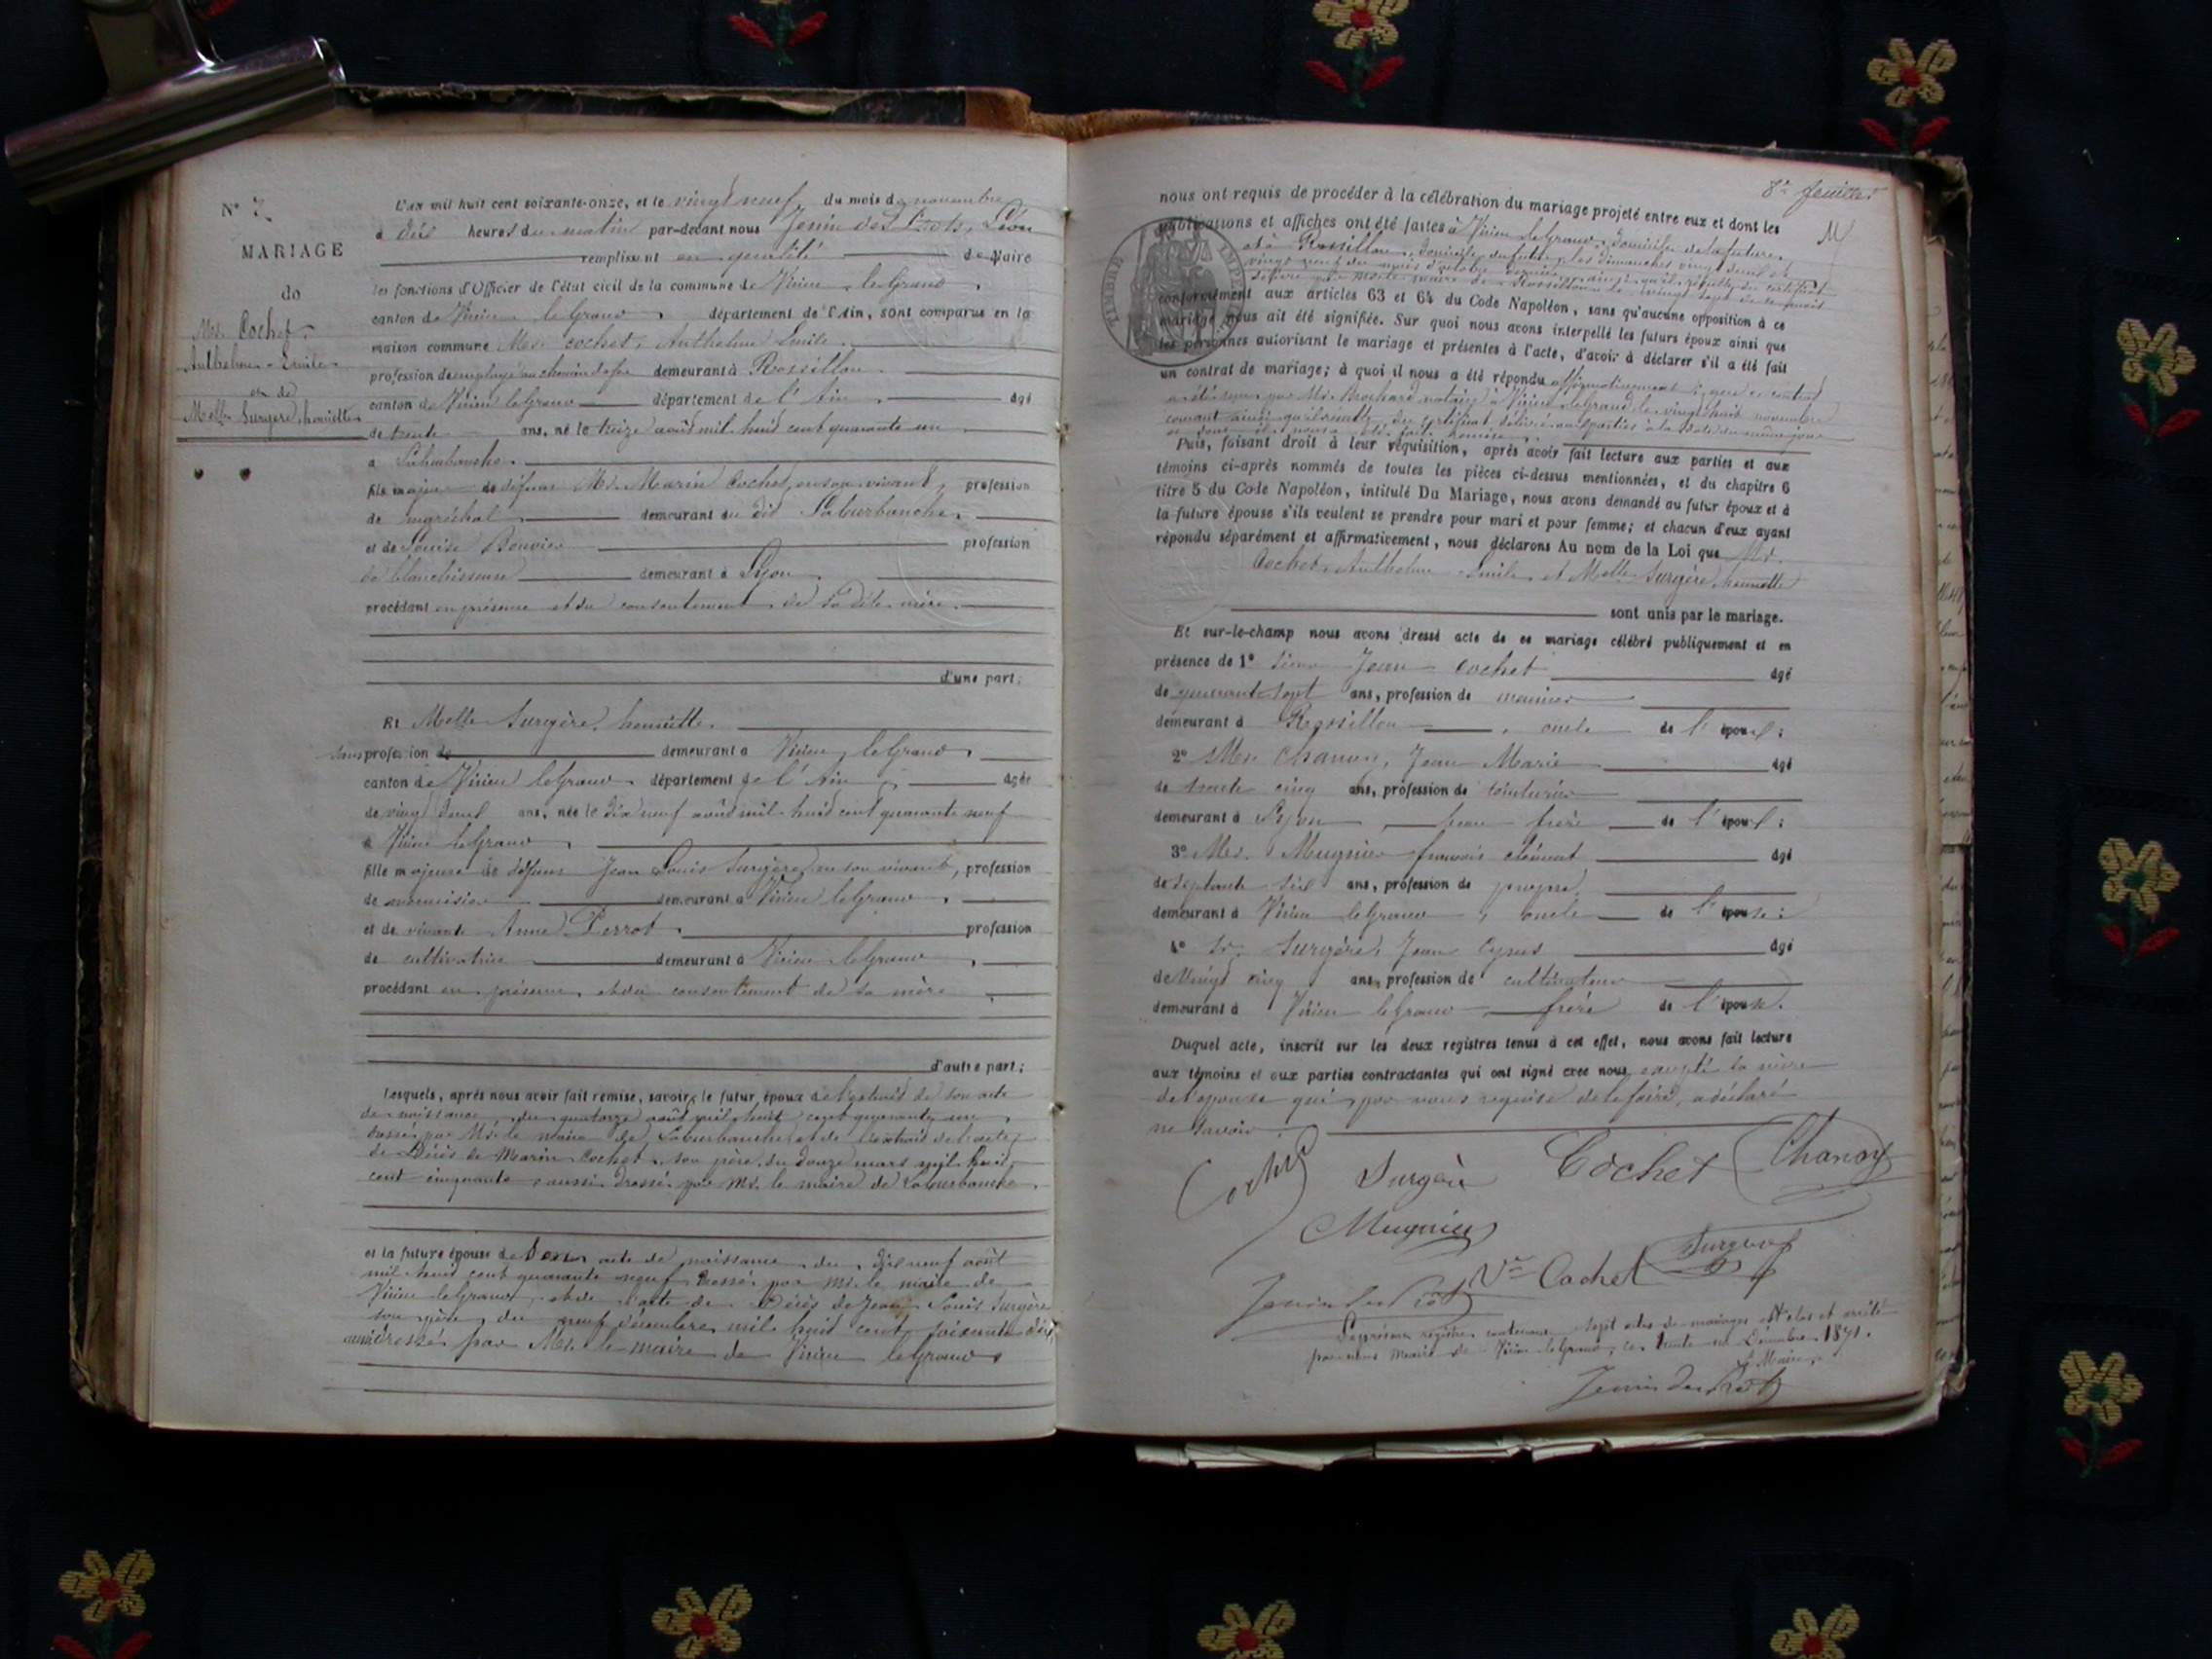 N° 7
MARIAGE
de
Mr. Cochet
Anthelme-Emile
et de
Melle Surgère, henriette
L'an mil huit cent soixante-onze, et le vingt neuf du mois de novembre
à dix heures du matin par-devant nous Jenin des Prots, Léon
remplissant en qualité de Maire
les fonctions d'Officier de l'état civil de la commune de Virieu le Grand
canton de Virieu le Grand, département de l'Ain, sont comparus en la
maison commune Mr. Cochet, Anthelme Emile
profession de employé au chemin de fer demeurant à Rossillon
canton de Virieu le Grand département de l'Ain âgé
de trente ans, né le treize août mil huit cent quarante un
à Laburbanche
fils majeur de défunt Mr. Marin Cochet, en son vivant, profession
de maréchal demeurant au dit Laburbanche
et de Louise Bouvier profession
de blanchisseuse demeurant à Lyon
procédant en présence et du consentement de sa dite mère
d'une part;
Et Melle Surgère, henriette
sans profession de demeurant à Virieu le Grand
canton de Virieu le Grand département de l'Ain âgée
de vingt deux ans, née le dix neuf août mil huit cent quarante neuf
à Virieu le Grand
fille majeure de défunt Jean Louis Surgère, en son vivant, profession
de menuisier demeurant à Virieu le Grand
et de vivante Anne Perrot profession
de cultivatrice demeurant à Virieu le Grand
procédant en présence et du consentement de sa mère
d'autre part;
Lesquels, après nous avoir fait remise, savoir: le futur époux de l'extrait de son acte
de naissance du quatorze août mil huit cent quarante un
dressé par Mr. le maire de Laburbanche et de l'extrait de l'acte
de Décès de Marin Cochet son père, du douze mars mil huit
cent cinquante aussi dressé par Mr. le maire de Laburbanche
et la future épouse de son acte de naissance du dix neuf août
mil huit cent quarante neuf dressé par Mr. le maire de
Virieu le Grand, et de l'acte de Décès de Jean Louis Surgère
son père, du neuf décembre mil huit cent soixante dix
aussi dressé par Mr. le maire de Virieu le Grand
8e feuillet
nous ont requis de procéder à la célébration du mariage projeté entre eux et dont les
publications et affiches ont été faites à Virieu le Grand, domicile de la future,
et à Rossillon, domicile du futur, les dimanches vingt deux et
vingt neuf du mois d'octobre dernier, ainsi qu'il résulte du certificat
délivré par Mr. le maire de Rossillon le vingt sept de ce mois
TIMBRE IMPERIAL
conformément aux articles 63 et 64 du Code Napoléon, sans qu'aucune opposition à ce
mariage nous ait été signifiée. Sur quoi nous avons interpellé les futurs époux ainsi que
les personnes autorisant le mariage et présentes à l'acte, d'avoir à déclarer s'il a été fait
un contrat de mariage; à quoi il nous a été répondu affirmativement & que ce contrat
a été reçu par Mr. Brochard notaire à Virieu le Grand le vingt huit novembre
courant ainsi qu'il résulte du certificat délivré aux parties à la date du même jour
et dont il nous a été fait remise.
Puis, faisant droit à leur réquisition, après avoir fait lecture aux parties et aux
témoins ci-après nommés de toutes les pièces ci-dessus mentionnées, et du chapitre 6
titre 5 du Code Napoléon, intitulé Du Mariage, nous avons demandé au futur époux et à
la future épouse s'ils veulent se prendre pour mari et pour femme; et chacun d'eux ayant
répondu séparément et affirmativement, nous déclarons Au nom de la Loi que Mr.
Cochet, Anthelme Emile et Melle Surgère, henriette
sont unis par le mariage.
Et sur-le-champ nous avons dressé acte de ce mariage célébré publiquement et en
présence de 1° sieur Jean Cochet âgé
de quarante sept ans, profession de meunier
demeurant à Rossillon, oncle de l'époux;
2° Mr. Chanay, Jean Marie âgé
de trente cinq ans, profession de teinturier
demeurant à Lyon, beau frère de l'époux;
3° Mr. Mugnier françois clément âgé
de septante six ans, profession de
demeurant à Virieu le Grand, oncle de l'épouse;
4° Sr. Surgère, Jean Cyprus âgé
de vingt cinq ans, profession de cultivateur
demeurant à Virieu le Grand frère de l'épouse.
Duquel acte, inscrit sur les deux registres tenus à cet effet, nous avons fait lecture
aux témoins et aux parties contractantes qui ont signé avec nous excepté la mère
de l'épouse qui, par nous requise de le faire, a déclaré
ne savoir.
Cochet Surgère Cochet Chanay
Mugnier
Jenin des Prots Ve Cochet Surgère
Le présent registre contenant sept actes de mariages est clos et arrêté
par nous Maire de Virieu le Grand, le trente un Décembre 1871.
Le Maire,
Jenin des Prots